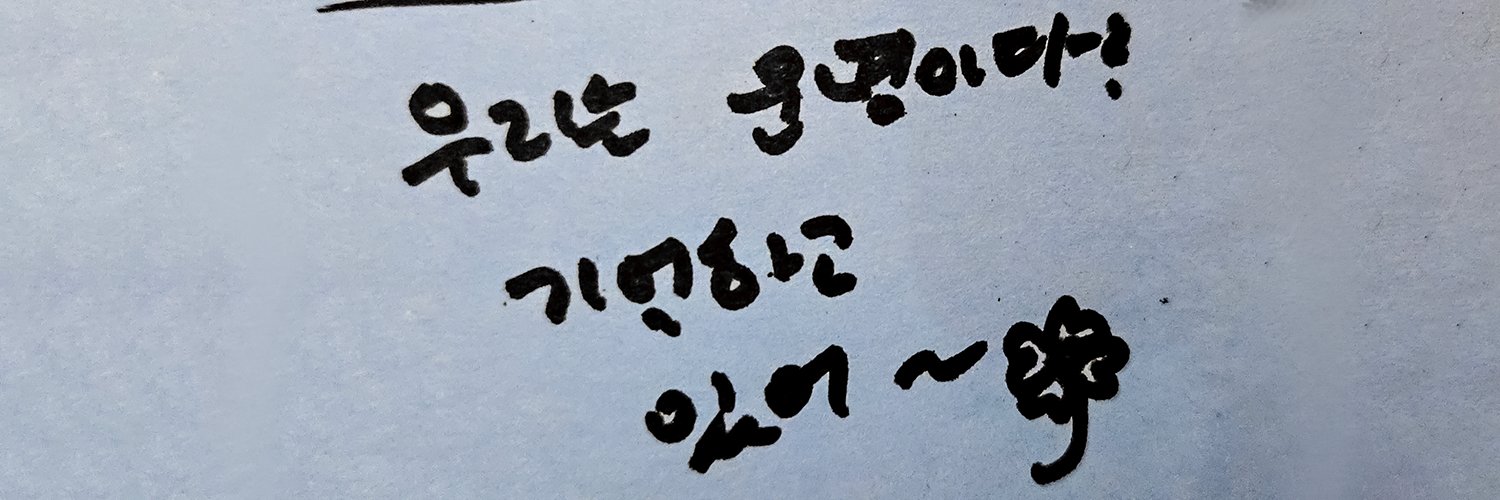 우리는 운명이다!
기억하고
있어~